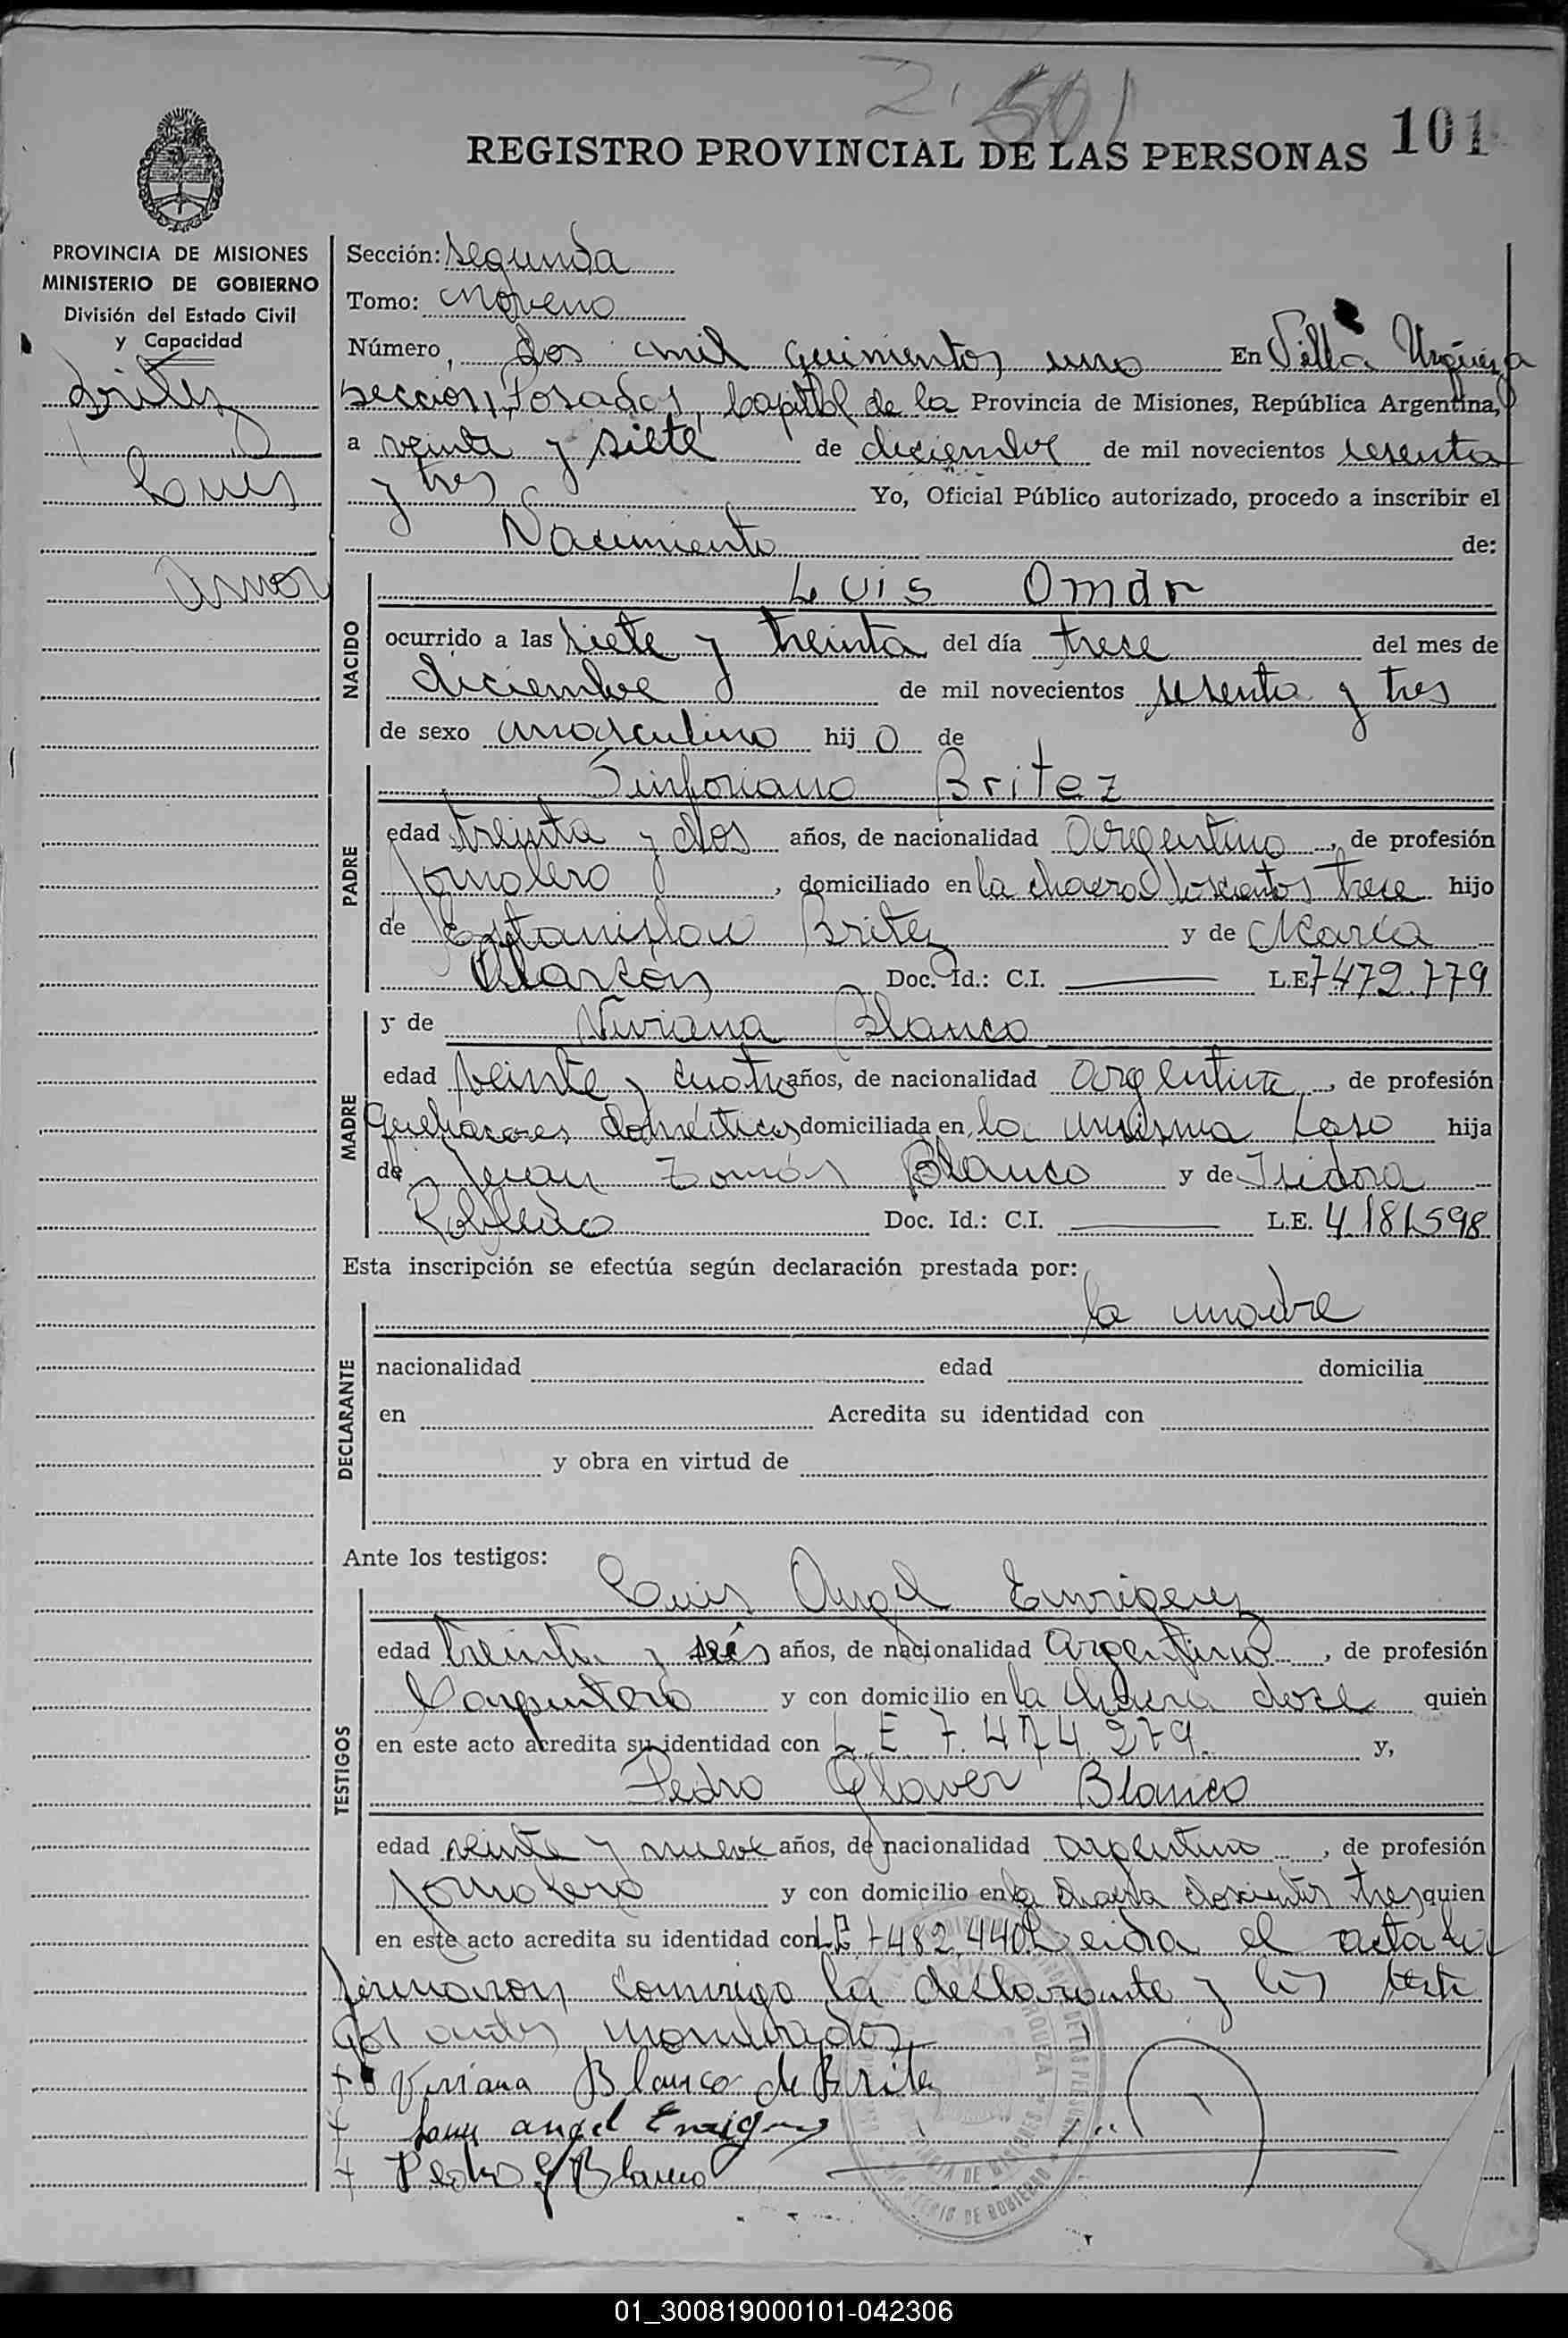 2.501
REGISTRO PROVINCIAL DE LAS PERSONAS 101
PROVINCIA DE MISIONES
MINISTERIO DE GOBIERNO
División del Estado Civil
y Capacidad
Britez
Luis
Omar
Sección: Segunda
Tomo: Noveno
Número, dos mil quinientos uno En Villa Urquiza
Sección, Posadas, Capital de la Provincia de Misiones, República Argentina,
a veinte y siete de diciembre de mil novecientos sesenta
y tres Yo, Oficial Público autorizado, procedo a inscribir el
Nacimiento de:
NACIDO
Luis Omar
ocurrido a las siete y treinta del día trece del mes de
diciembre de mil novecientos sesenta y tres
de sexo masculino hijo de
PADRE
Sinforiano Britez
edad treinta y dos años, de nacionalidad argentino, de profesión
Jornalero, domiciliado en la chacra doscientos trece hijo
de Estanislao Britez y de María
Alarcón Doc. Id.: C.I. L.E. 7472.779
MADRE
y de Viviana Blanco
edad veinte y cuatro años, de nacionalidad argentina, de profesión
Quehaceres domésticos domiciliada en la misma casa hija
de Juan Tomás Blanco y de Isidora
Robledo Doc. Id.: C.I. L.E. 4.181.598
Esta inscripción se efectúa según declaración prestada por:
DECLARANTE
la madre
nacionalidad edad domicilia
en Acredita su identidad con
y obra en virtud de
Ante los testigos:
TESTIGOS
Luis Angel Enriquez
edad treinta y seis años, de nacionalidad argentino, de profesión
Carpintero y con domicilio en la chacra doce quien
en este acto acredita su identidad con L.E. 7.474.279. y,
Pedro Glaver Blanco
edad veinte y nueve años, de nacionalidad argentino, de profesión
Jornalero y con domicilio en la chacra doscientos tres quien
en este acto acredita su identidad con L.E. 7482.440 Leida el acta la
firmaron conmigo la declarante y los testi
gos antes nombrados
+ Viviana Blanco de Britez
+ Luis angel Enriquez
+ Pedro G Blanco
01_300819000101-042306